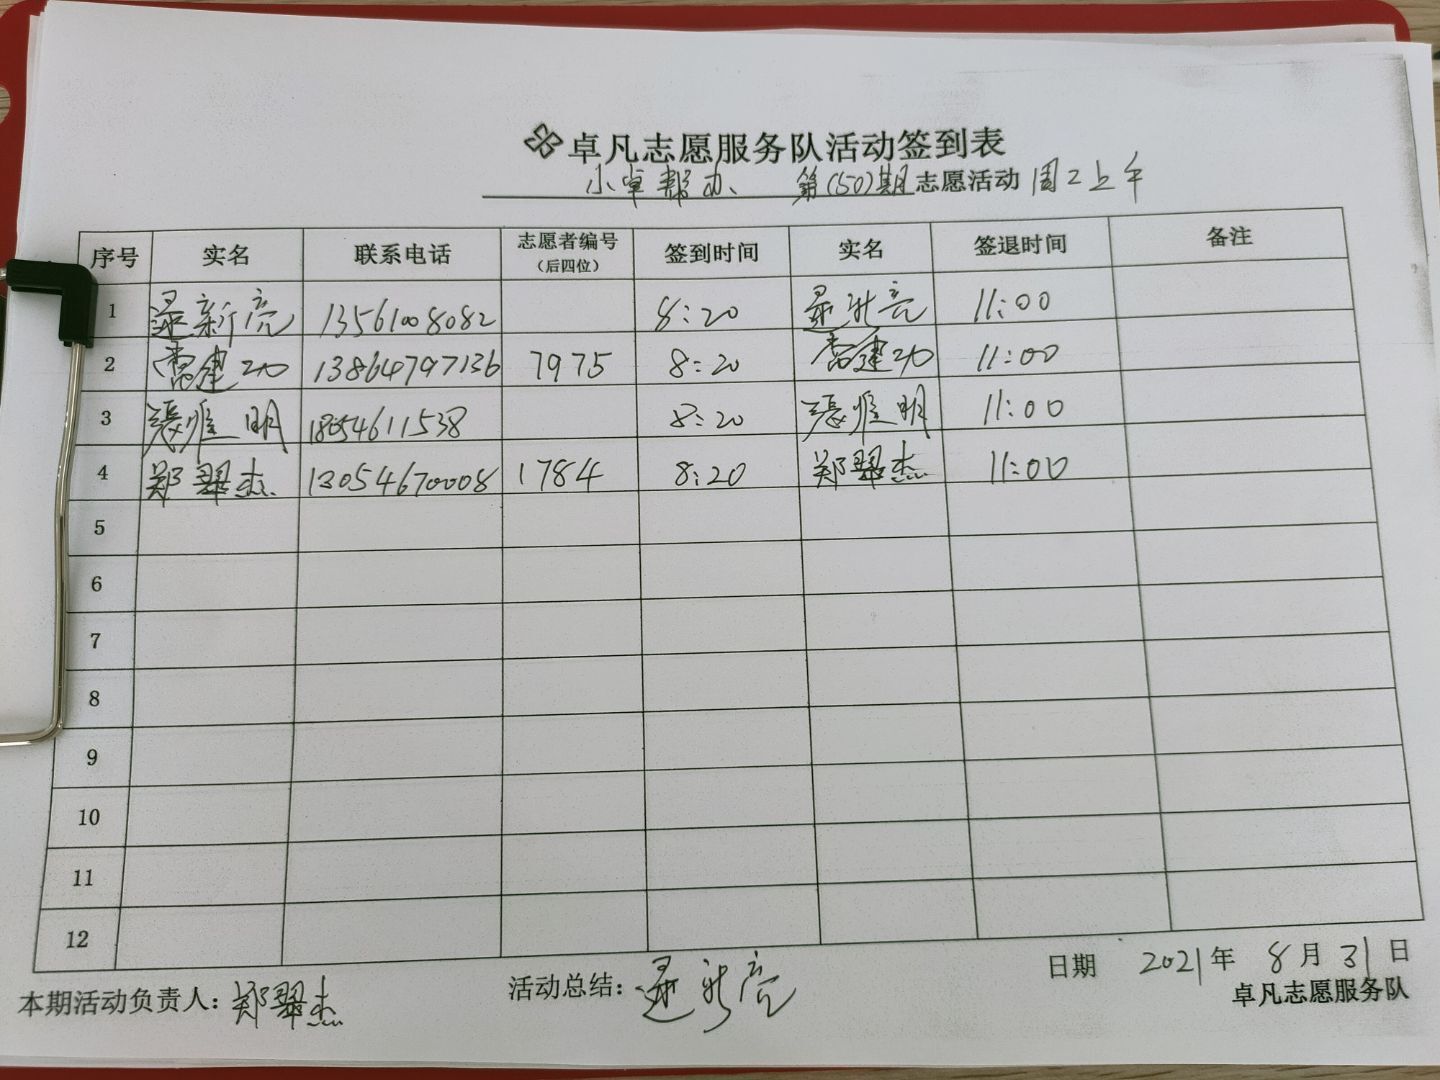 卓凡志愿服务队活动签到表
小卓帮办、 第(50)期志愿活动 周2上午
序号 实名 联系电话 志愿者编号(后四位) 签到时间 实名 签退时间 备注
1 新亮 13561008082 8:20 新亮 11:00
2 常建功 13864797136 7975 8:20 常建功 11:00
3 张雅明 18654611538 8:20 张雅明 11:00
4 郑翠杰 13054670008 1784 8:20 郑翠杰 11:00
5
6
7
8
9
10
11
12
日期 2021年 8月31日
本期活动负责人:郑翠杰 活动总结: 新亮 卓凡志愿服务队